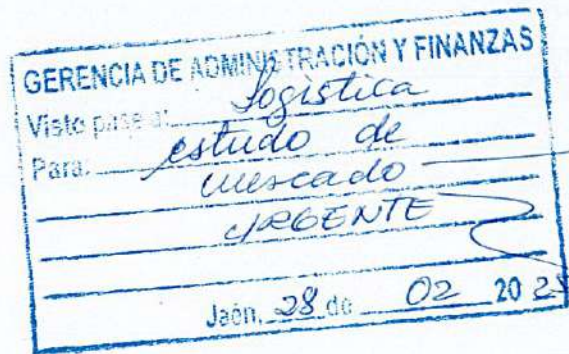 GERENCIA DE ADMINISTRACIÓN Y FINANZAS
Visto pase a: Logistica
Para: estudo de
mercado
URGENTE
Jaén, 28 de 02 20